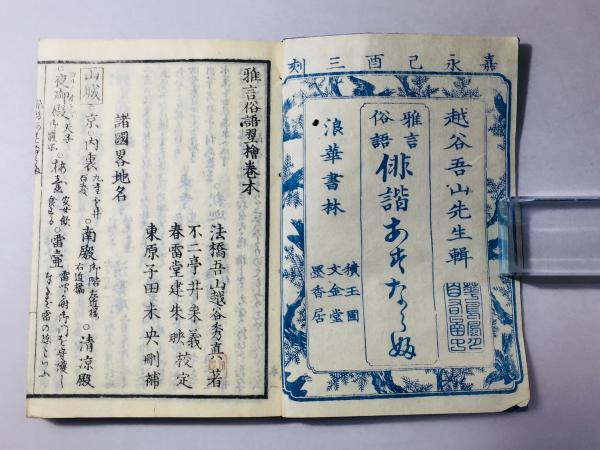 嘉永己酉三刻
越谷吾山先生輯
雅言
俗語
俳諧あすならふ
浪華書林
積玉圃
文金堂
墨香居
雅言俗語翌檜巻本
法橋吾山越谷秀真著
不二亭井来義
春雷堂建朱映校定
東原子田未央刪補
諸國畧地名
山城。京。内裏 。南殿 御階 左近桜 右近橘 。清凉殿
。夜御殿 天子 。雷壺